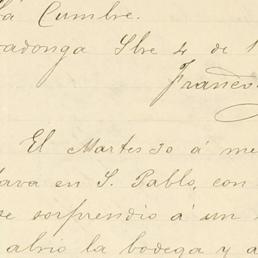 Cumbre.
adonga Sbre 4 de 1
Franc
El Martes 30 á me
tava en S. Pablo, con
se sorprendio á un
abrio la bodega y a